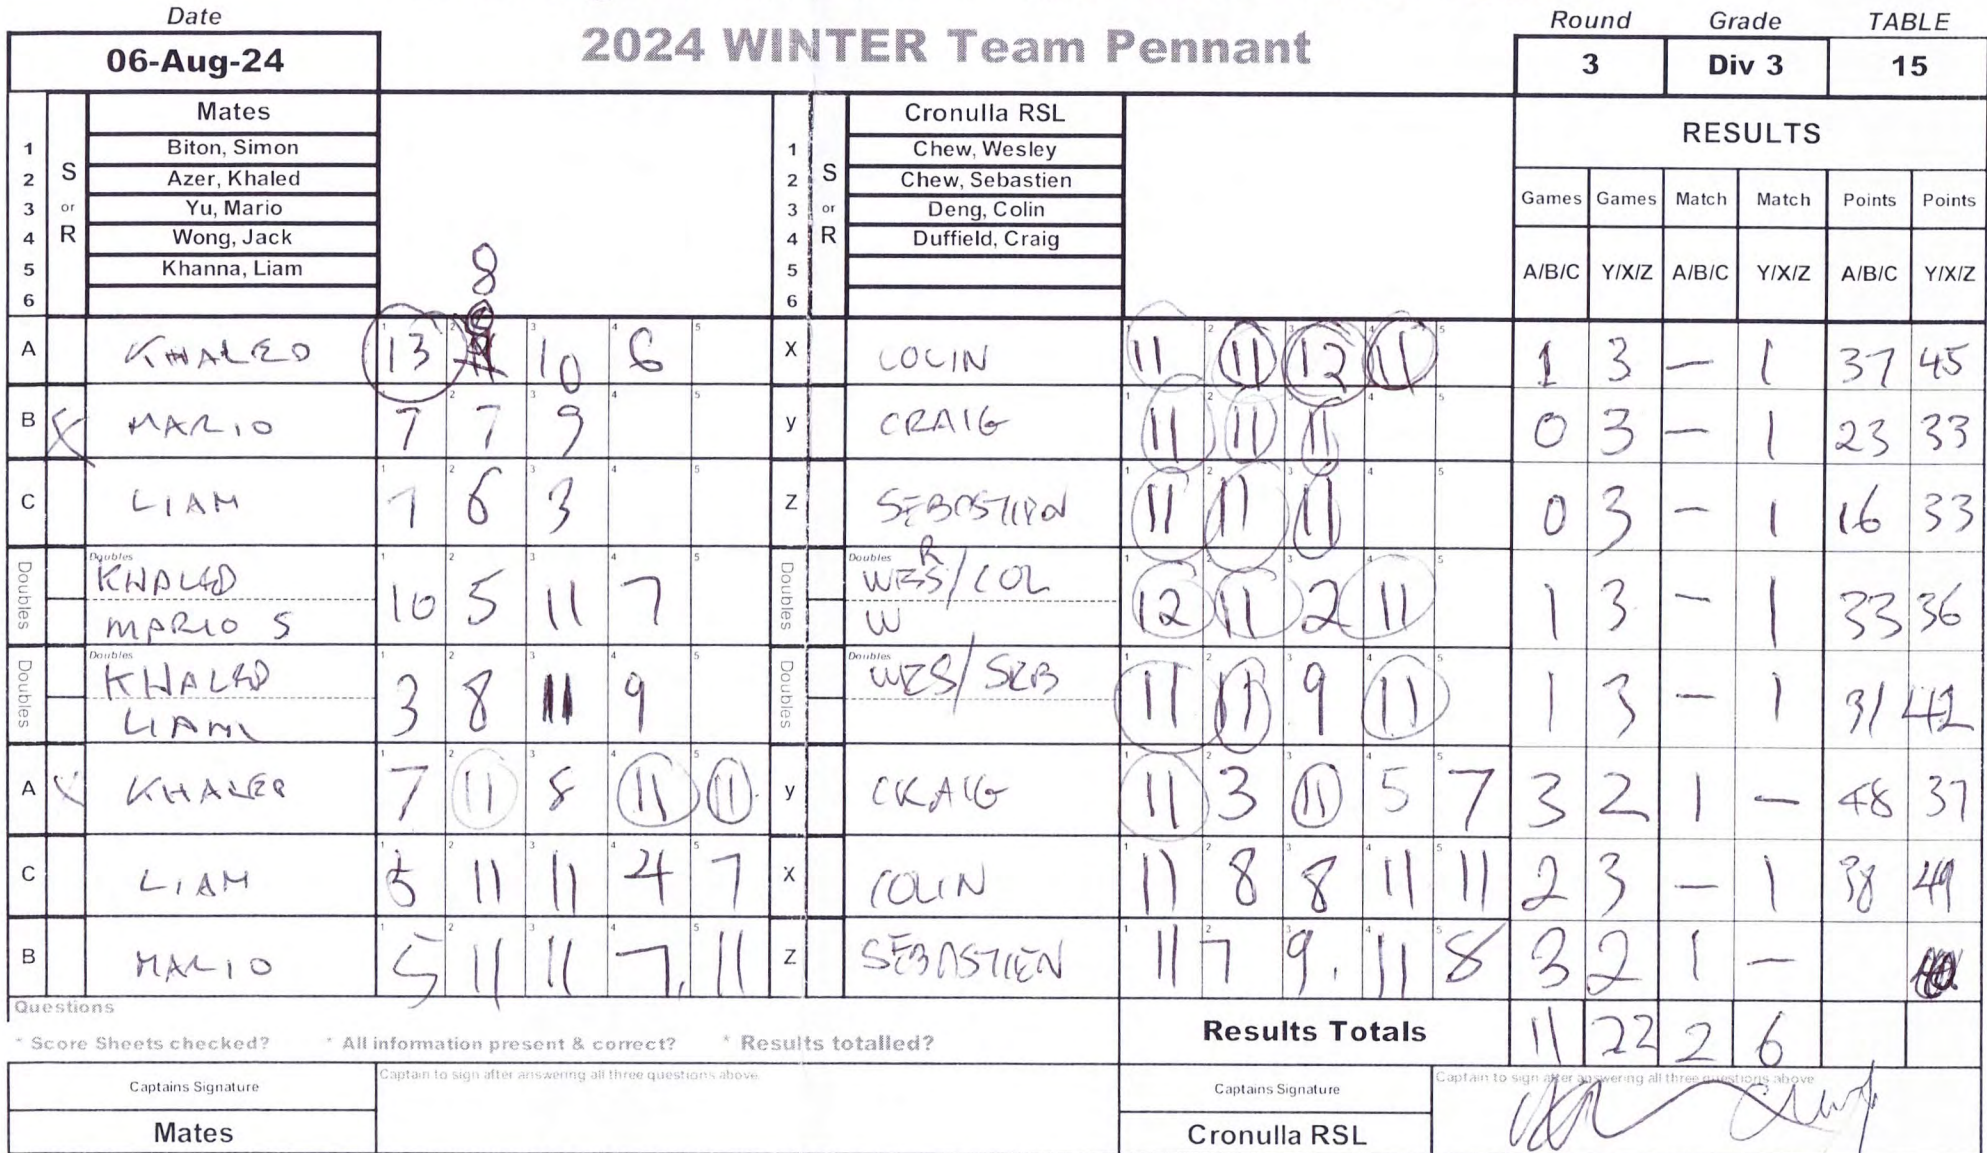 Date
06-Aug-24
2024 WINTER Team Pennant
Round Grade TABLE
3 Div 3 15
Mates
1 Biton, Simon
2 Azer, Khaled
3 Yu, Mario
4 Wong, Jack
5 Khanna, Liam
6
S or R
8
Cronulla RSL
1 Chew, Wesley
2 Chew, Sebastien
3 Deng, Colin
4 Duffield, Craig
5
6
S or R
RESULTS
Games Games Match Match Points Points
A/B/C Y/X/Z A/B/C Y/X/Z A/B/C Y/X/Z
A KHALED 13 10 6 X COLIN 11 11 12 11 1 3 — 1 37 45
B MARIO 7 7 9 y CRAIG 11 11 11 0 3 — 1 23 33
C LIAM 7 6 3 Z SEBASTIEN 11 11 11 0 3 - 1 16 33
Doubles Doubles KHALED MARIO S 10 5 11 7 Doubles Doubles R WES/COL W 12 11 2 11 1 3 - 1 33 36
Doubles Doubles KHALED LIAM 3 8 11 9 Doubles Doubles WES/SEB 11 11 9 11 1 3 - 1 31 42
A KHALED 7 11 8 11 11 y CRAIG 11 3 11 5 7 3 2 1 — 48 37
C LIAM 5 11 11 4 7 X COLIN 11 8 8 11 11 2 3 — 1 38 49
B MARIO 5 11 11 7 11 Z SEBASTIEN 11 7 9 11 8 3 2 1 —
Questions
* Score Sheets checked? * All information present & correct? * Results totalled?
Results Totals 11 22 2 6
Captains Signature
Captain to sign after answering all three questions above
Mates
Captains Signature
Captain to sign after answering all three questions above
Cronulla RSL